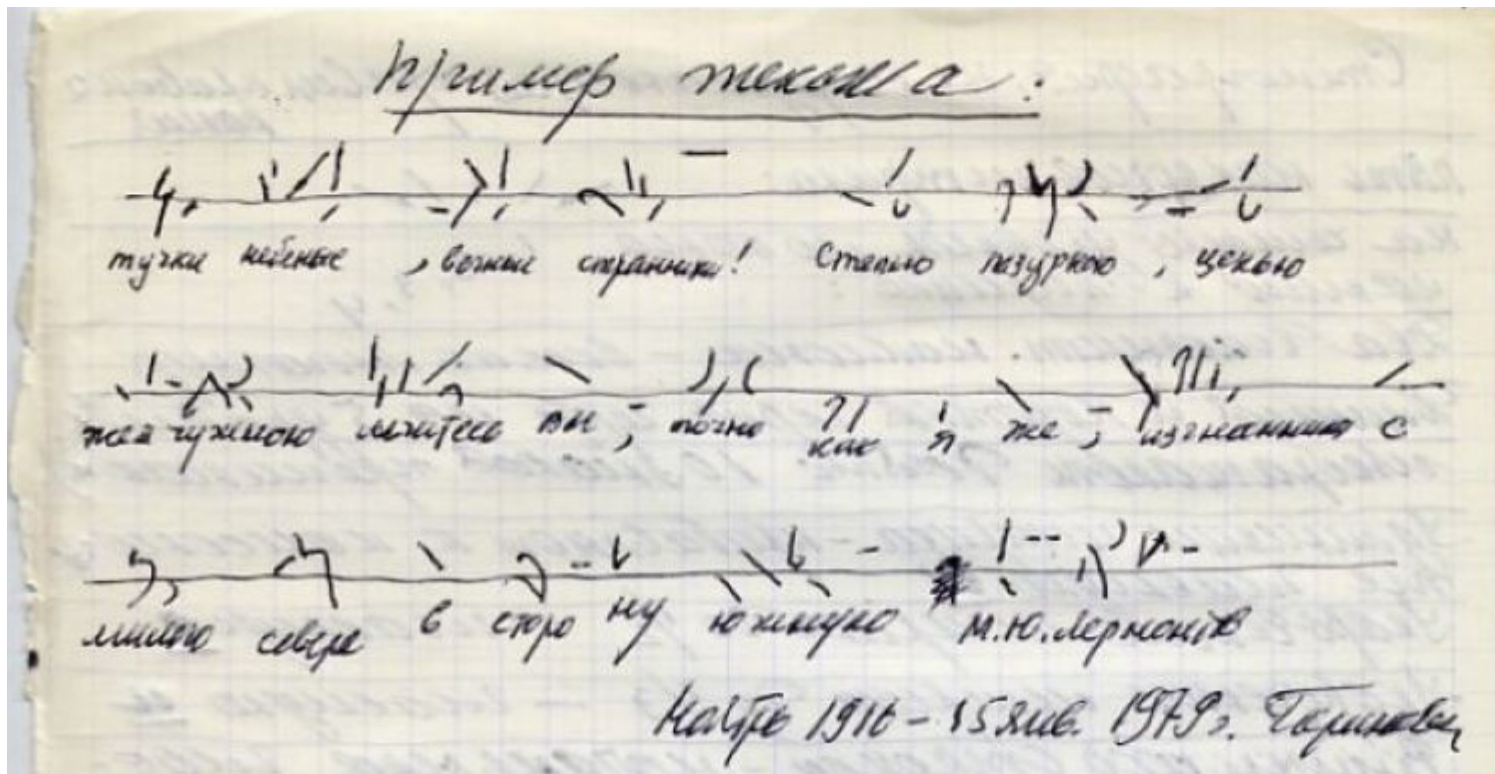 Пример текста:
тучки небеные, вечные странники! Степью лазурною, цепью
жемчужною мчитесь вы, точно как я же, изгнанники с
милого севера в сторону южную М.Ю. Лермонтов
1916 – 15 янв. 1979г.